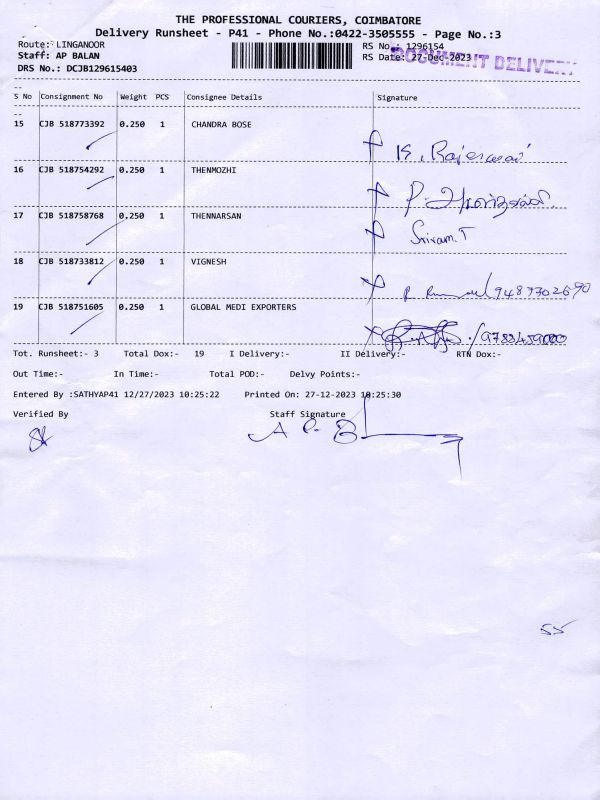 THE PROFESSIONAL COURIERS, COIMBATORE
Delivery Runsheet - P41 - Phone No.:0422-3505555 - Page No.:3
Route: LINGANOOR RS No.: 1296154
Staff: AP BALAN RS Date: 27-Dec-2023 DOCUMENT DELIVERY
DRS No.: DCJB129615403
S No Consignment No Weight PCS Consignee Details Signature
15 CJB 518773392 0.250 1 CHANDRA BOSE
K. Rajeswari
16 CJB 518754292 0.250 1 THENMOZHI
17 CJB 518758768 0.250 1 THENNARSAN
Sriram.T
18 CJB 518733812 0.250 1 VIGNESH
19 CJB 518751605 0.250 1 GLOBAL MEDI EXPORTERS
Tot. Runsheet:- 3 Total Dox:- 19 I Delivery:- II Delivery:- RTN Dox:-
Out Time:- In Time:- Total POD:- Delvy Points:-
Entered By :SATHYAP41 12/27/2023 10:25:22 Printed On: 27-12-2023 10:25:30
Verified By Staff Signature
A P. B
55